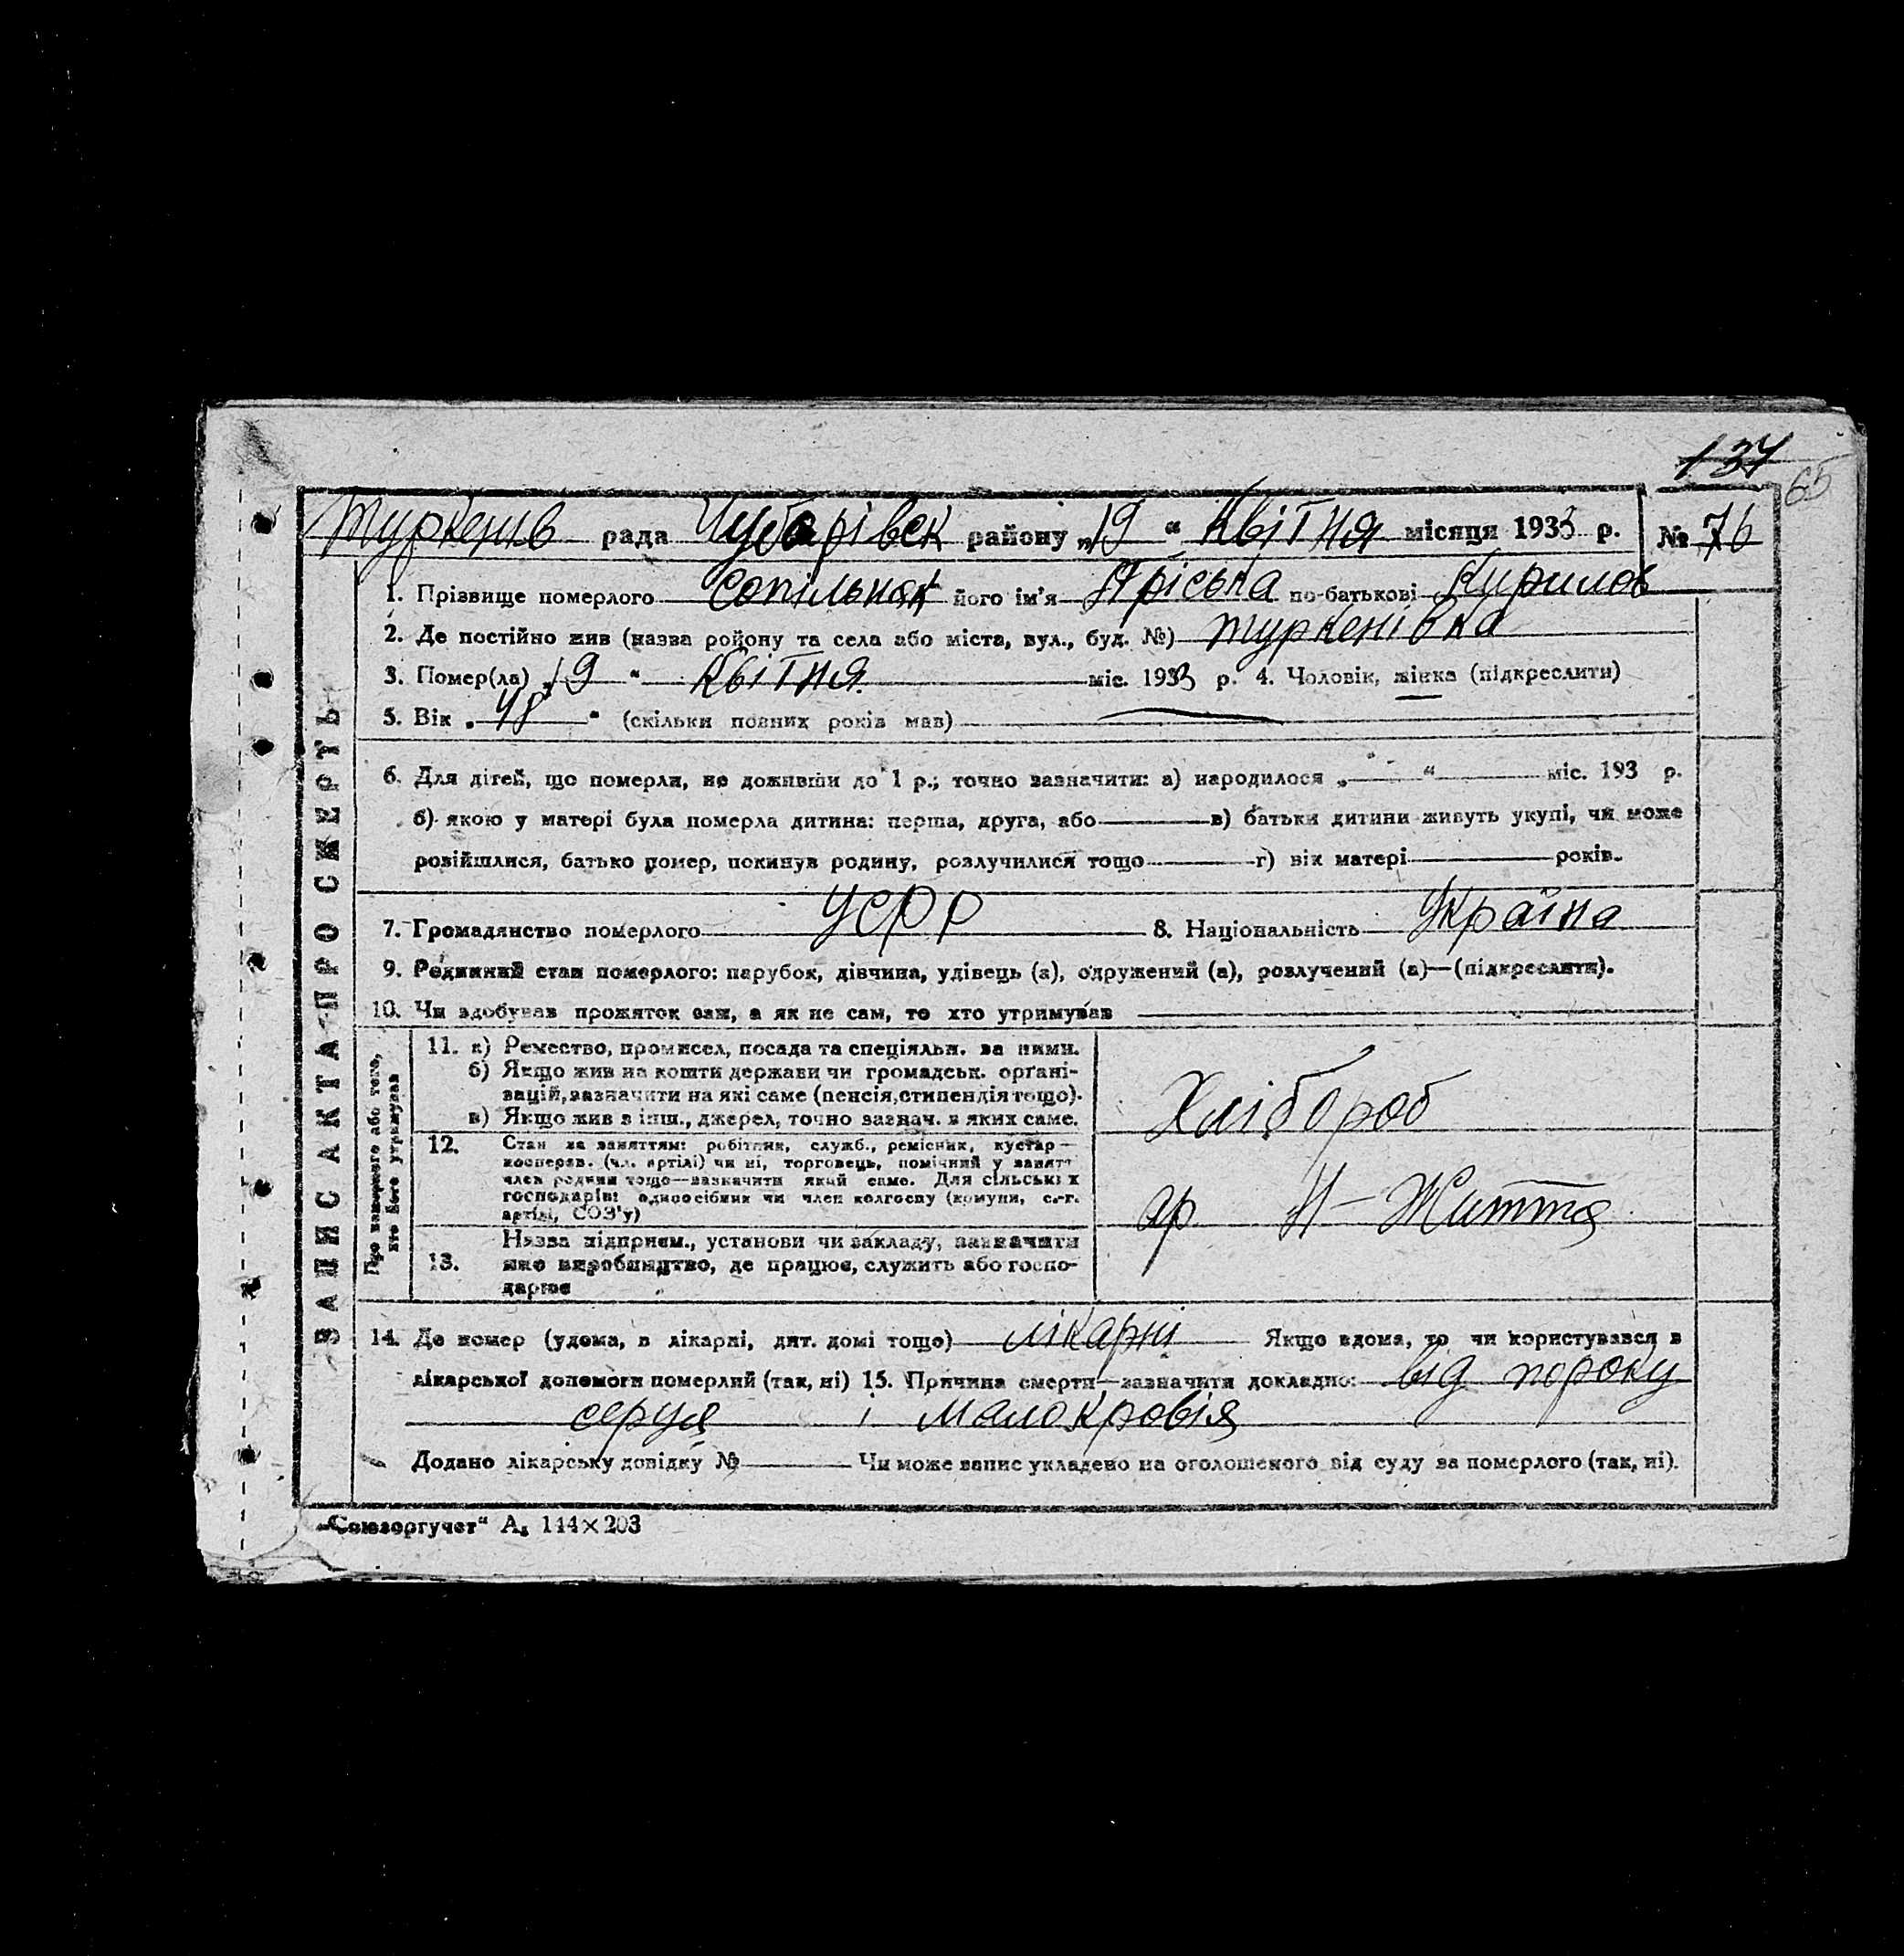 137
65
Туркенів рада Чубарівск району „19“ Квітня місяця 1933 р. № 76
ЗАПИС АКТА ПРО СМЕРТЬ
1. Прізвище померлого Сопільняк його ім'я Яріська по-батькові Курилов
2. Де постійно жив (назва району та села або міста, вул., буд. №) Туркенівка
3. Помер(ла) „19“ Квітня міс. 1933 р. 4. Чоловік, жінка (підкреслити)
5. Вік „48“ (скільки повних років мав)
6. Для дітей, що померли, не доживши до 1 р.; точно зазначити: а) народилося „ “ міс. 193 р.
б) якою у матері була померла дитина: перша, друга, або в) батьки дитини живуть укупі, чи може
розійшлися, батько помер, покинув родину, розлучилися тощо г) вік матері років.
7. Громадянство померлого УСРР 8. Національність Україна
9. Родинний стан померлого: парубок, дівчина, удівець (а), одружений (а), розлучений (а)—(підкреслити).
10. Чи здобував прожиток сам, а як не сам, то хто утримував
Про померлого або того, хто його утримував
11. а) Ремество, промисел, посада та спеціяльн. за ними.
б) Якщо жив на кошти держави чи громадськ. органі-
зацій, зазначити на які саме (пенсія, стипендія тощо).
в) Якщо жив з інш., джерел, точно зазнач. з яких саме.
Хлібороб
12. Стан за заняттям: робітник, служб., ремісник, кустар—
косперов. (чл. артілі) чи ні, торговець, помічний у занятт
член родини тощо—зазначити який саме. Для сільських
господарів: одноосібник чи член колгоспу (комуни, с.-г.
артілі, СОЗ'у)
ар Н-Життя
13. Назва підприєм., установи чи закладу, зазначити
яке виробництво, де працює, служить або госпо-
дарює
14. Де помер (удома, в лікарні, дит. домі тощо) лікарні Якщо вдома, то чи користувався в
лікарської допомоги померлий (так, ні) 15. Причина смерти—зазначити докладно: від пороку
серця і малокровія
Додано лікарську довідку № Чи може запис укладено на оголошеного від суду за померлого (так, ні).
„Союзоргучет“ А₅ 144×203